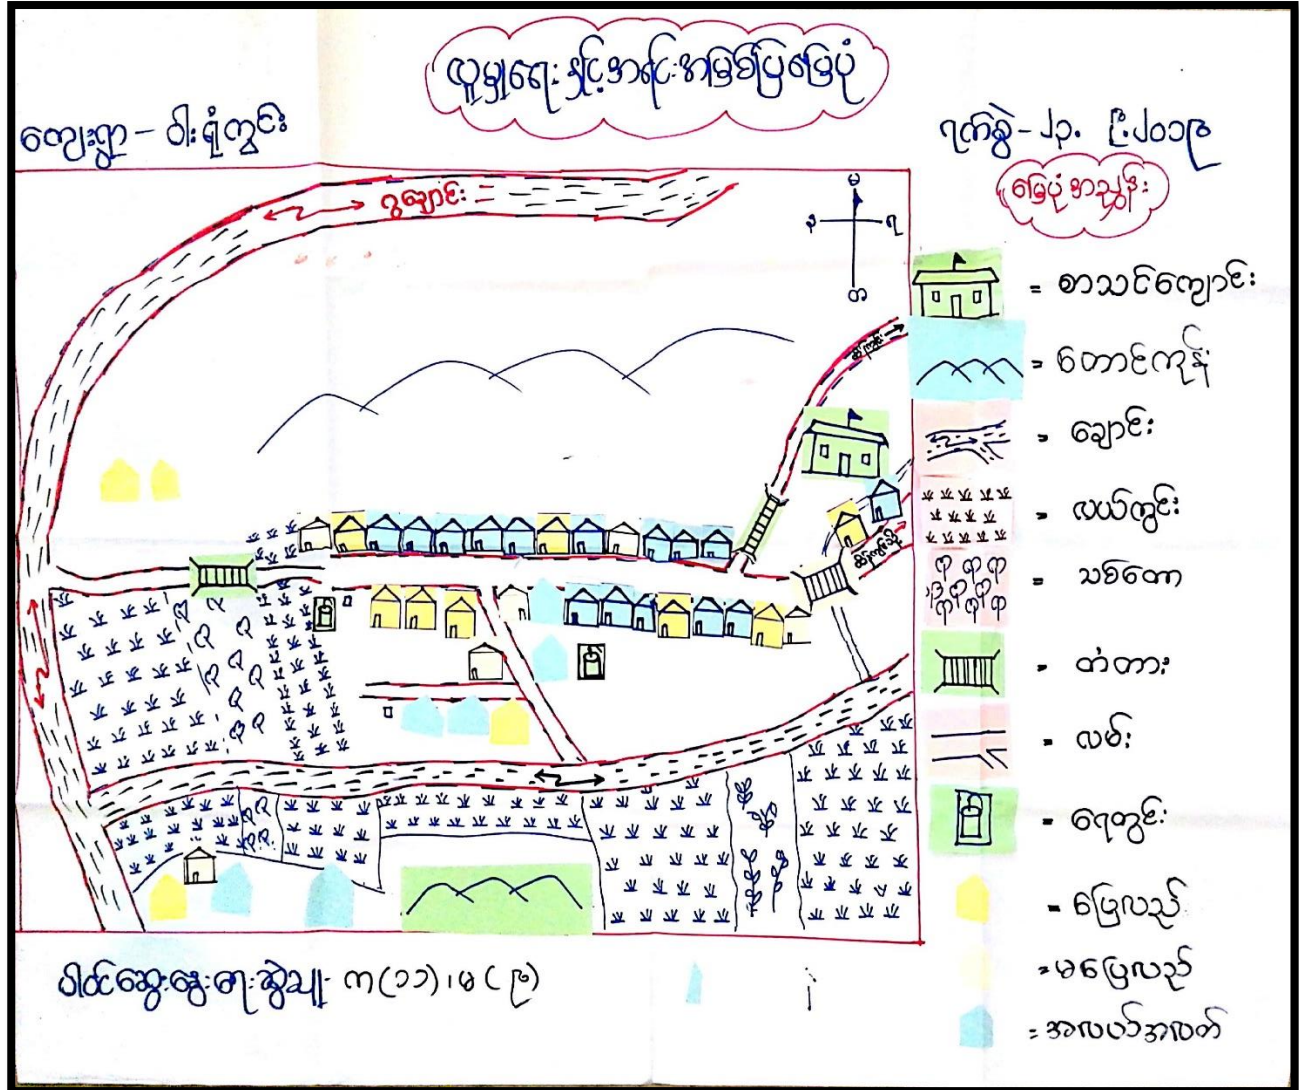 လူမှုရေးနှင့်အရင်းအမြစ်ပြမြေပုံ
ကျေးရွာ - ဝါးရုံကွင်း
ရက်စွဲ - ၂၃. ၉.၂၀၁၉
မြေပုံအညွှန်း
ဂွချောင်း
မ
န
ရ
တ
= စာသင်ကျောင်း
= တောင်ကုန်း
= ချောင်း
= လယ်ကွင်း
= သစ်တော
= တံတား
= လမ်း
= ရေတွင်း
= ပြေလည်
= မပြေလည်
= အလယ်အလတ်
ပါဝင်ဆွေးနွေးရေးဆွဲသူ က(၁၁)၊ မ(၉)